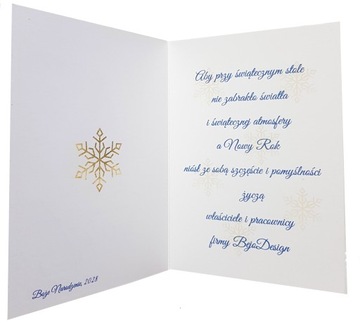 Aby przy świątecznym stole
nie zabrakło światła
i świątecznej atmosfery
a Nowy Rok
niósł ze sobą szczęście i pomyślności
życzą
właściciele i pracownicy
firmy BejoDesign
Boże Narodzenie, 2028